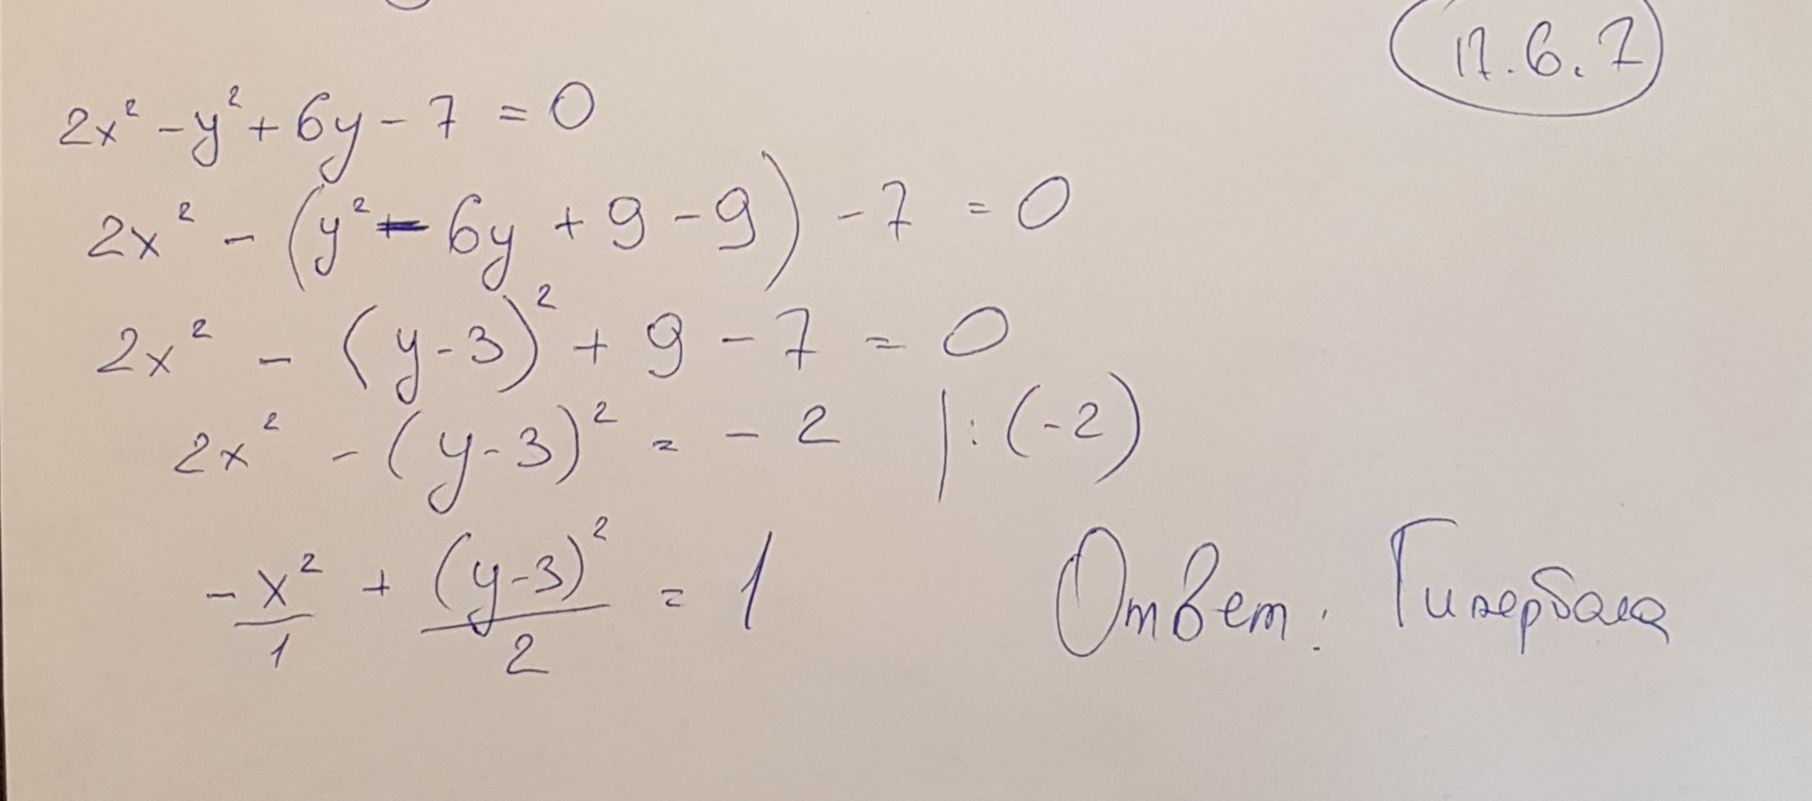 17.6.7
2x² - y² + 6y - 7 = 0
2x² - (y² - 6y + 9 - 9) - 7 = 0
2x² - (y-3)² + 9 - 7 = 0
2x² - (y-3)² = - 2 | : (-2)
-x²/1 + (y-3)²/2 = 1
Ответ: Гипербола